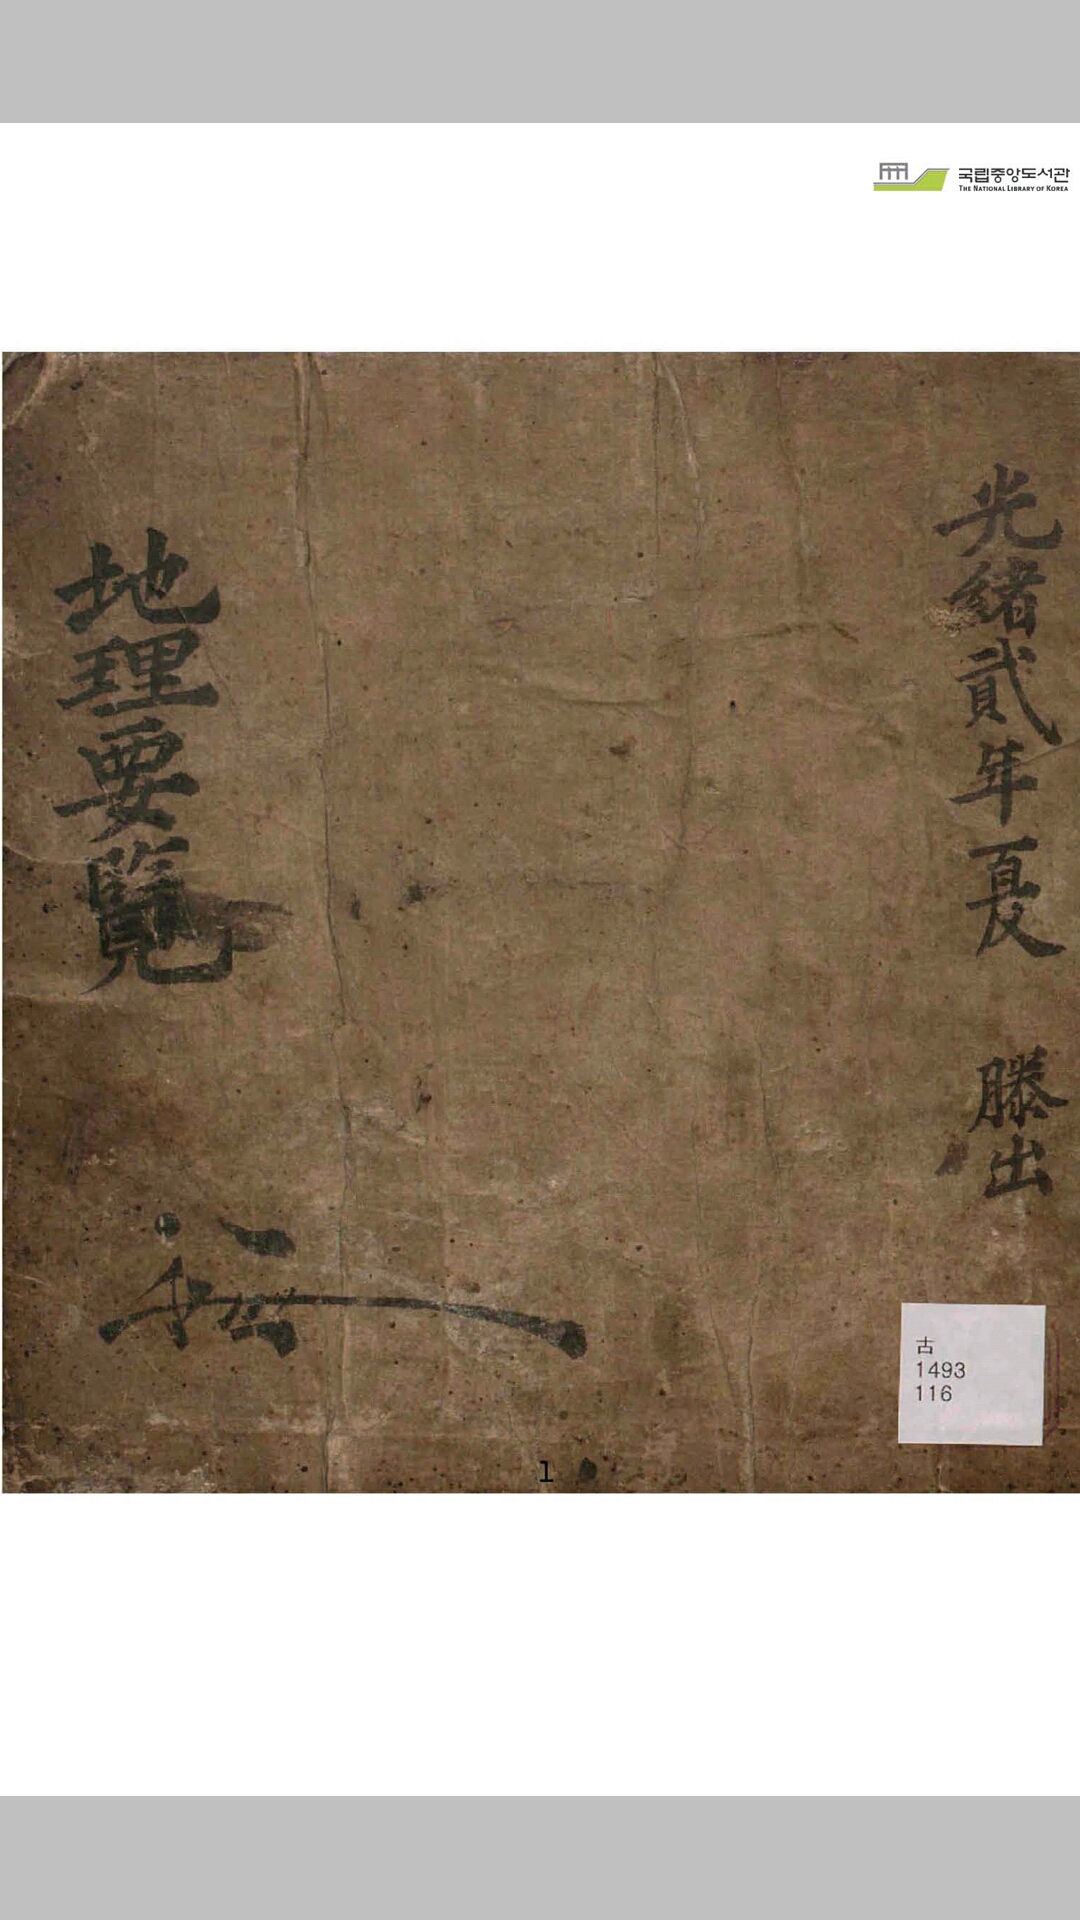 국립중앙도서관
THE NATIONAL LIBRARY OF KOREA
光緖貳年夏 謄出
地理要覽
古
1493
116
1